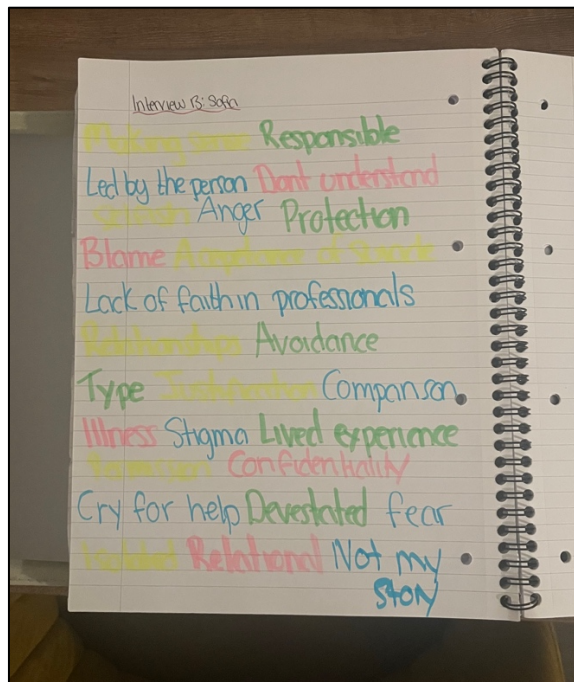 Interview 13: Sofia
Making sense Responsible
Led by the person Dont understand
Anger Protection
Blame Acceptance of Suicide
Lack of faith in professionals
Relationships Avoidance
Type Justification Comparison
Illness Stigma Lived experience
Permission Confidentiality
Cry for help Devestated fear
Isolated Relational Not my
story